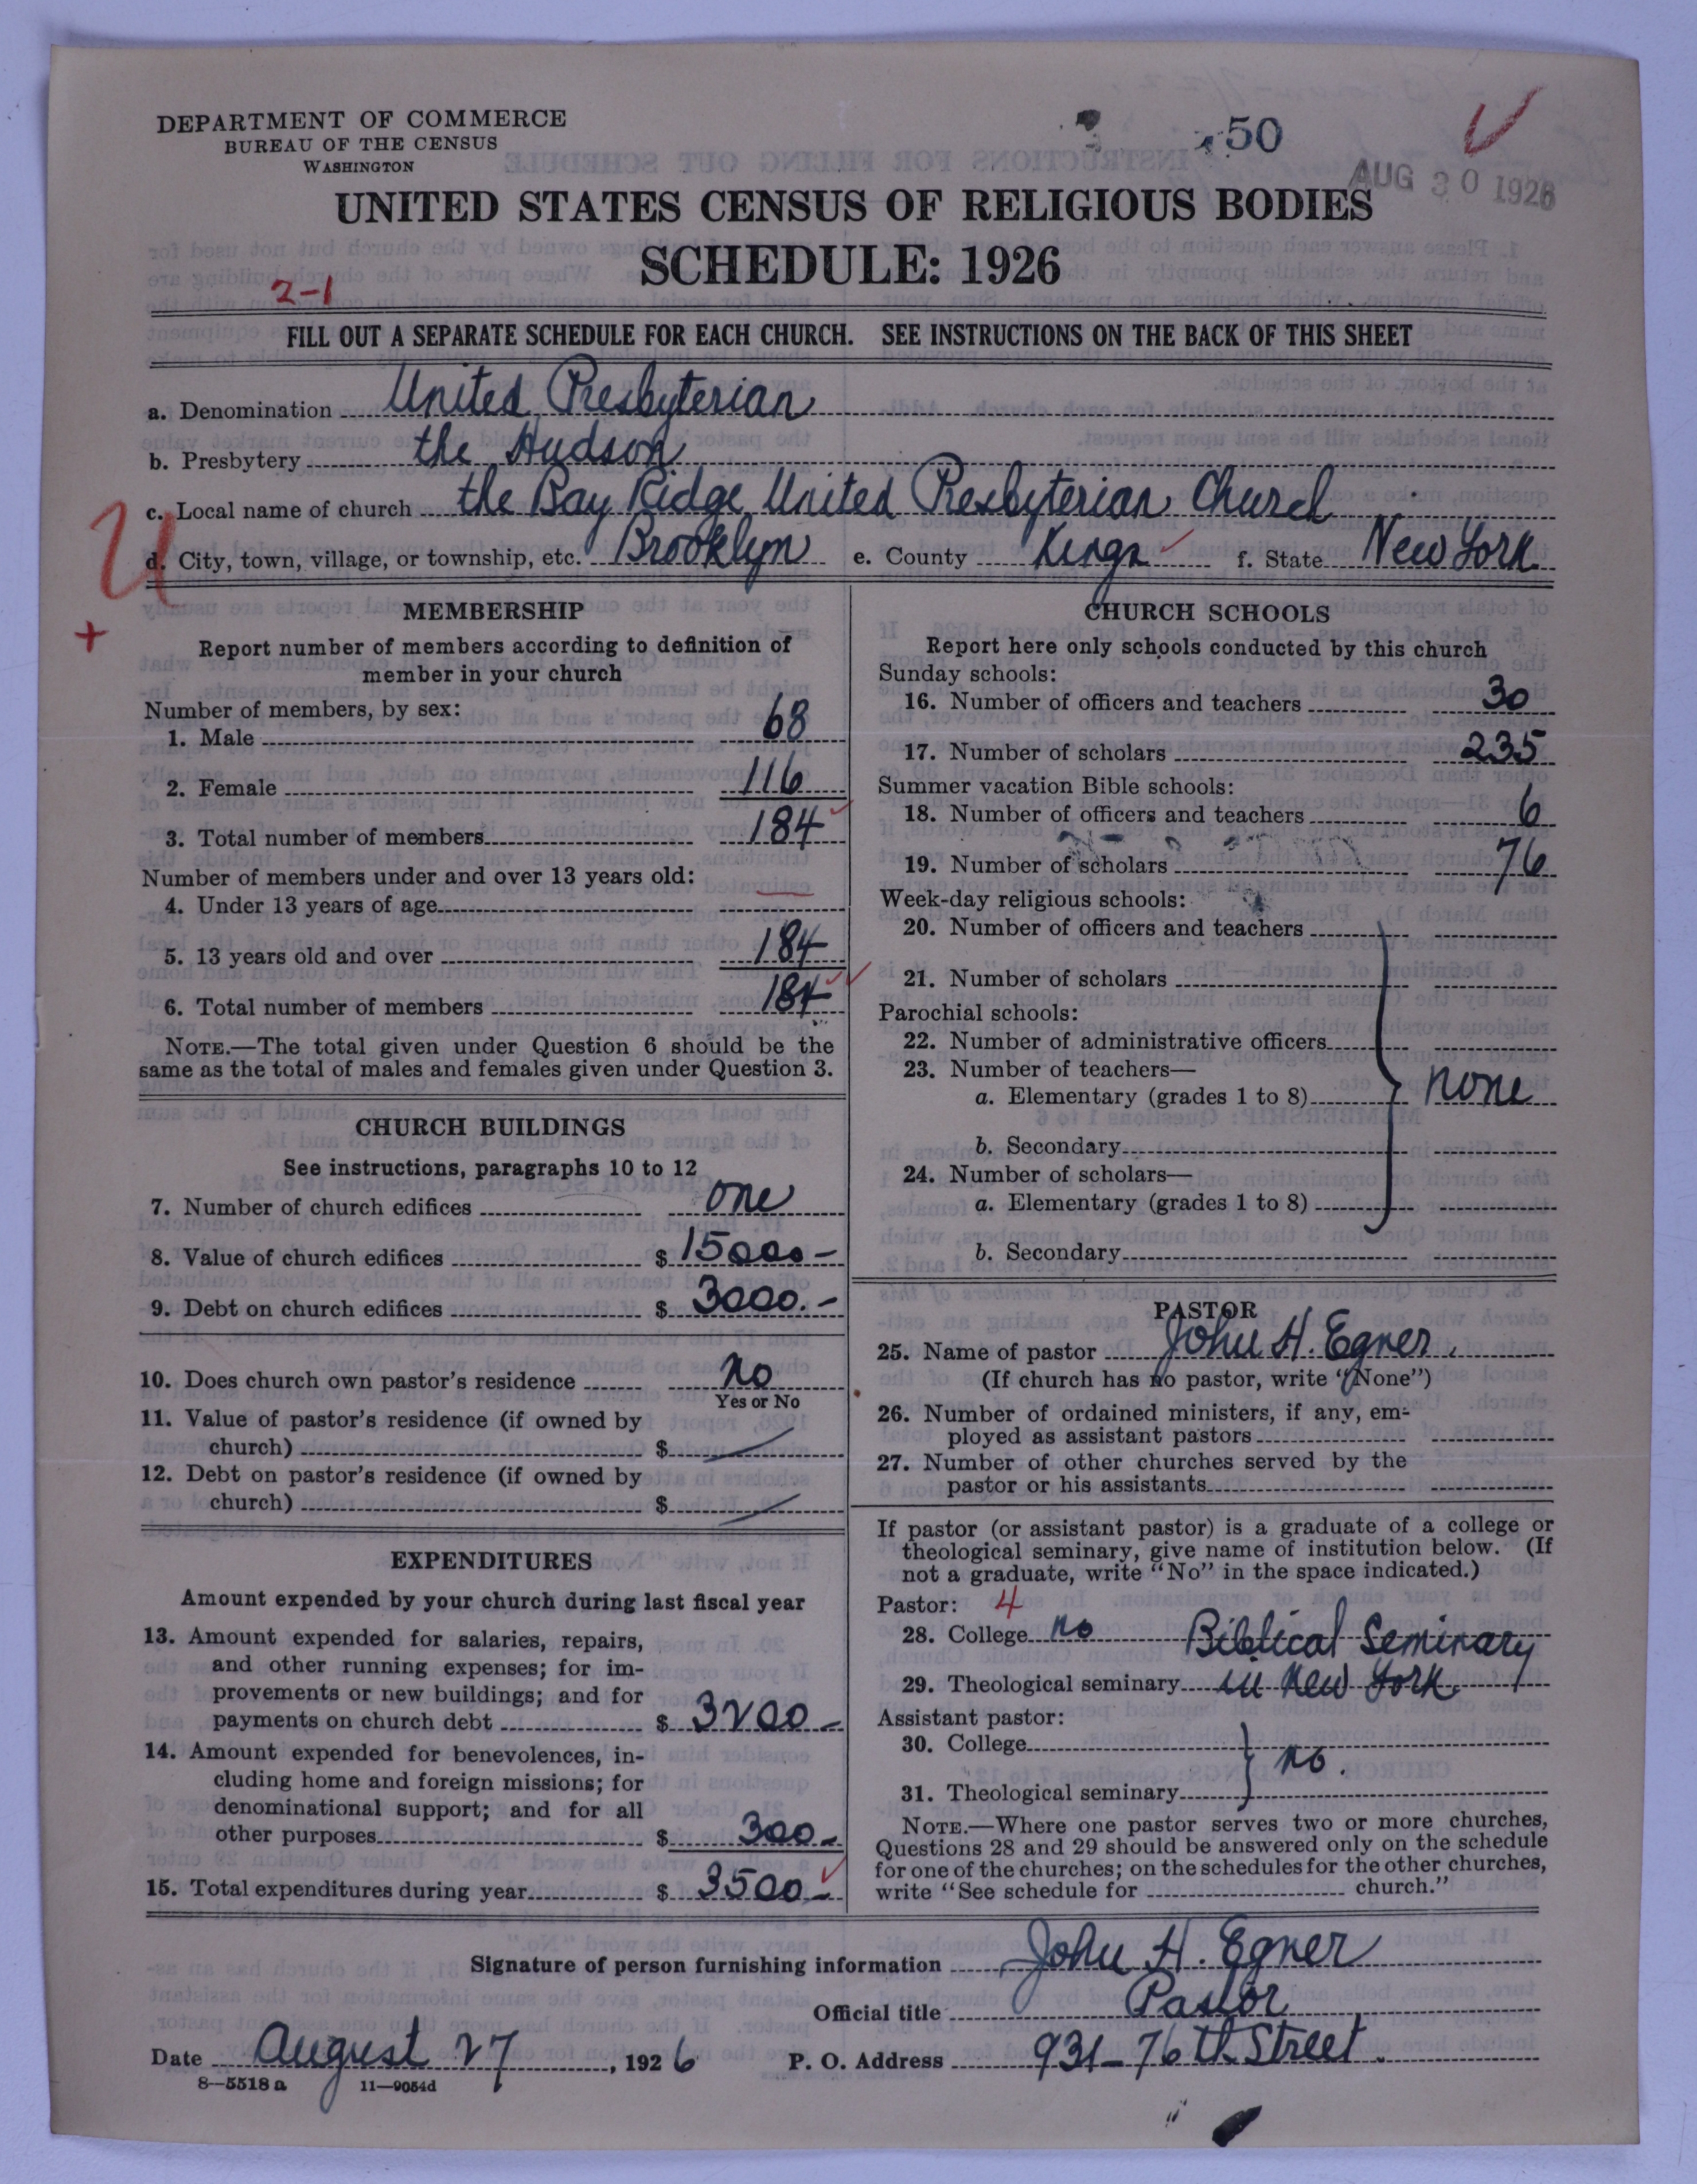 DEPARTMENT OF COMMERCE
BUREAU OF THE CENSUS
WASHINGTON
50
AUG 30 1926
UNITED STATES CENSUS OF RELIGIOUS BODIES
SCHEDULE: 1926
2-1
FILL OUT A SEPARATE SCHEDULE FOR EACH CHURCH. SEE INSTRUCTIONS ON THE BACK OF THIS SHEET
a. Denomination United Presbyterian
b. Presbytery the Hudson
c. Local name of church the Bay Ridge United Presbyterian Church
d. City, town, village, or township, etc. Brooklyn e. County Kings f. State New York
U
+
MEMBERSHIP
Report number of members according to definition of
member in your church
Number of members, by sex:
1. Male 68
2. Female 116
3. Total number of members 184
Number of members under and over 13 years old:
4. Under 13 years of age
5. 13 years old and over 184
6. Total number of members 184
NOTE.—The total given under Question 6 should be the
same as the total of males and females given under Question 3.
CHURCH BUILDINGS
See instructions, paragraphs 10 to 12
7. Number of church edifices one
8. Value of church edifices $ 15000-
9. Debt on church edifices $ 3000.-
10. Does church own pastor's residence no
Yes or No
11. Value of pastor's residence (if owned by
church) $
12. Debt on pastor's residence (if owned by
church) $
EXPENDITURES
Amount expended by your church during last fiscal year
13. Amount expended for salaries, repairs,
and other running expenses; for im-
provements or new buildings; and for
payments on church debt $ 3200-
14. Amount expended for benevolences, in-
cluding home and foreign missions; for
denominational support; and for all
other purposes $ 300-
15. Total expenditures during year $ 3500-
CHURCH SCHOOLS
Report here only schools conducted by this church
Sunday schools:
16. Number of officers and teachers 30
17. Number of scholars 235
Summer vacation Bible schools:
18. Number of officers and teachers 6
19. Number of scholars 76
Week-day religious schools:
20. Number of officers and teachers
21. Number of scholars
Parochial schools:
22. Number of administrative officers
23. Number of teachers—
a. Elementary (grades 1 to 8) none
b. Secondary
24. Number of scholars—
a. Elementary (grades 1 to 8)
b. Secondary
PASTOR
25. Name of pastor John H. Egner
(If church has no pastor, write "None")
26. Number of ordained ministers, if any, em-
ployed as assistant pastors
27. Number of other churches served by the
pastor or his assistants
If pastor (or assistant pastor) is a graduate of a college or
theological seminary, give name of institution below. (If
not a graduate, write "No" in the space indicated.)
Pastor: 4
28. College no Biblical Seminary
29. Theological seminary in New York
Assistant pastor:
30. College
no.
31. Theological seminary
NOTE.—Where one pastor serves two or more churches,
Questions 28 and 29 should be answered only on the schedule
for one of the churches; on the schedules for the other churches,
write "See schedule for church."
Signature of person furnishing information John H. Egner
Official title Pastor
Date August 27, 1926 P. O. Address 931-76th Street.
8—5518a 11—9054d